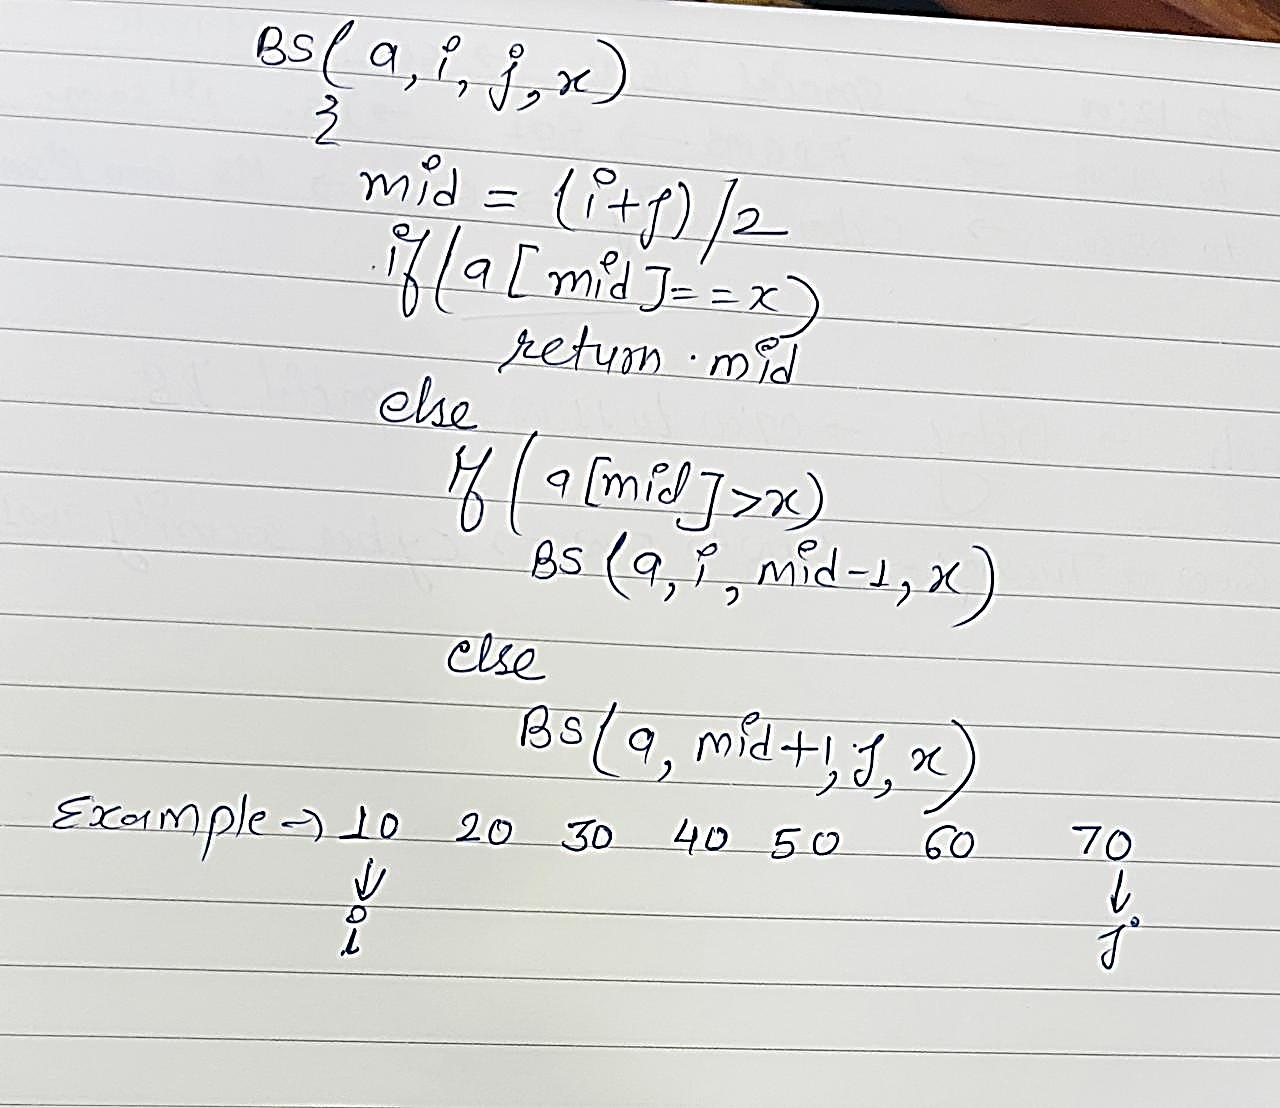 BS(a, i, j, x)
{
mid = (i+j)/2
if(a[mid]==x)
return mid
else
if(a[mid]>x)
BS(a, i, mid-1, x)
else
BS(a, mid+1, j, x)
Example → 10 20 30 40 50 60 70
↓ ↓
i j